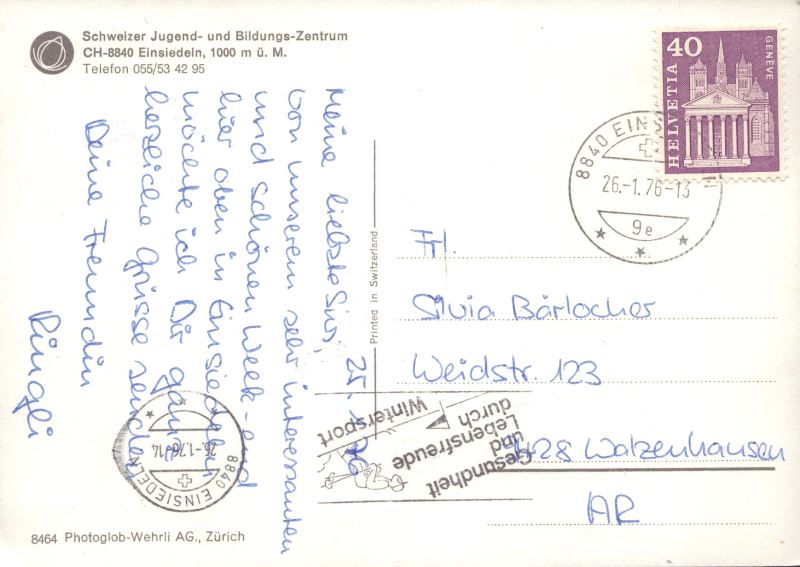 Schweizer Jugend- und Bildungs-Zentrum
CH-8840 Einsiedeln, 1000 m ü. M.
Telefon 055/53 42 95
25. 1. 76
Meine liebste Sivi,
von unserem sehr interessanten
und schönen Week-end
hier oben in Einsiedeln
möchte ich Dir ganz
herzliche Grüsse senden
Deine Freundin
Ringli
8464 Photoglob-Wehrli AG., Zürich
Printed in Switzerland
40
HELVETIA
GENÈVE
8840 EINSIEDELN
26.-1.76-13
9e
Frl.
Silvia Bärlocher
Weidstr. 123
9428 Walzenhausen
AR
Gesundheit
und
Lebensfreude
durch
Wintersport
8840 EINSIEDELN
26.-1.76 14